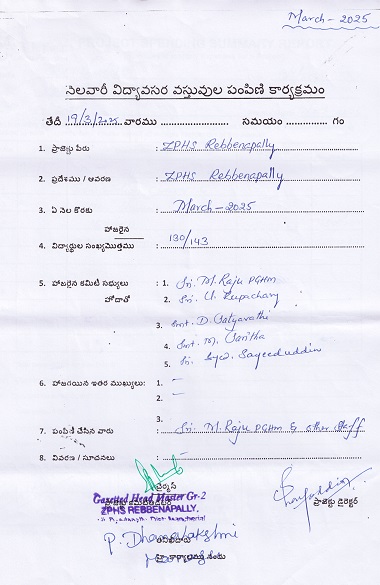 March - 2025
నెలవారీ విద్యావసర వస్తువుల పంపిణి కార్యక్రమం
తేదీ 19/3/2025 వారము ............ సమయం ............ గం
1. ప్రాజెక్టు పేరు : ZPHS Rebbenapally
2. ప్రదేశము / ఆవరణ : ZPHS Rebbenapally
3. ఏ నెల కొరకు : March - 2025
హాజరైన
4. విద్యార్థుల సంఖ్యమొత్తము : 130/143
5. హాజరైన కమిటి సభ్యులు : 1. Sri. M. Raju PGHM
హోదాతో 2. Sri. U. Rupachary
3. Smt. D. Satyavathi
4. Smt. M.
5. Sri. Syd. Sayeeduddin
6. హాజరయిన ఇతర ముఖ్యులు: 1. —
2. —
3.
7. పంపిణి చేసిన వారు : Sri. M. Raju PGHM & other staff
8. వివరణ / సూచనలు :
Gazetted Head Master Gr-2
ZPHS REBBENAPALLY.
ప్రాజెక్టు డైరెక్టర్
P. Dhanalakshmi